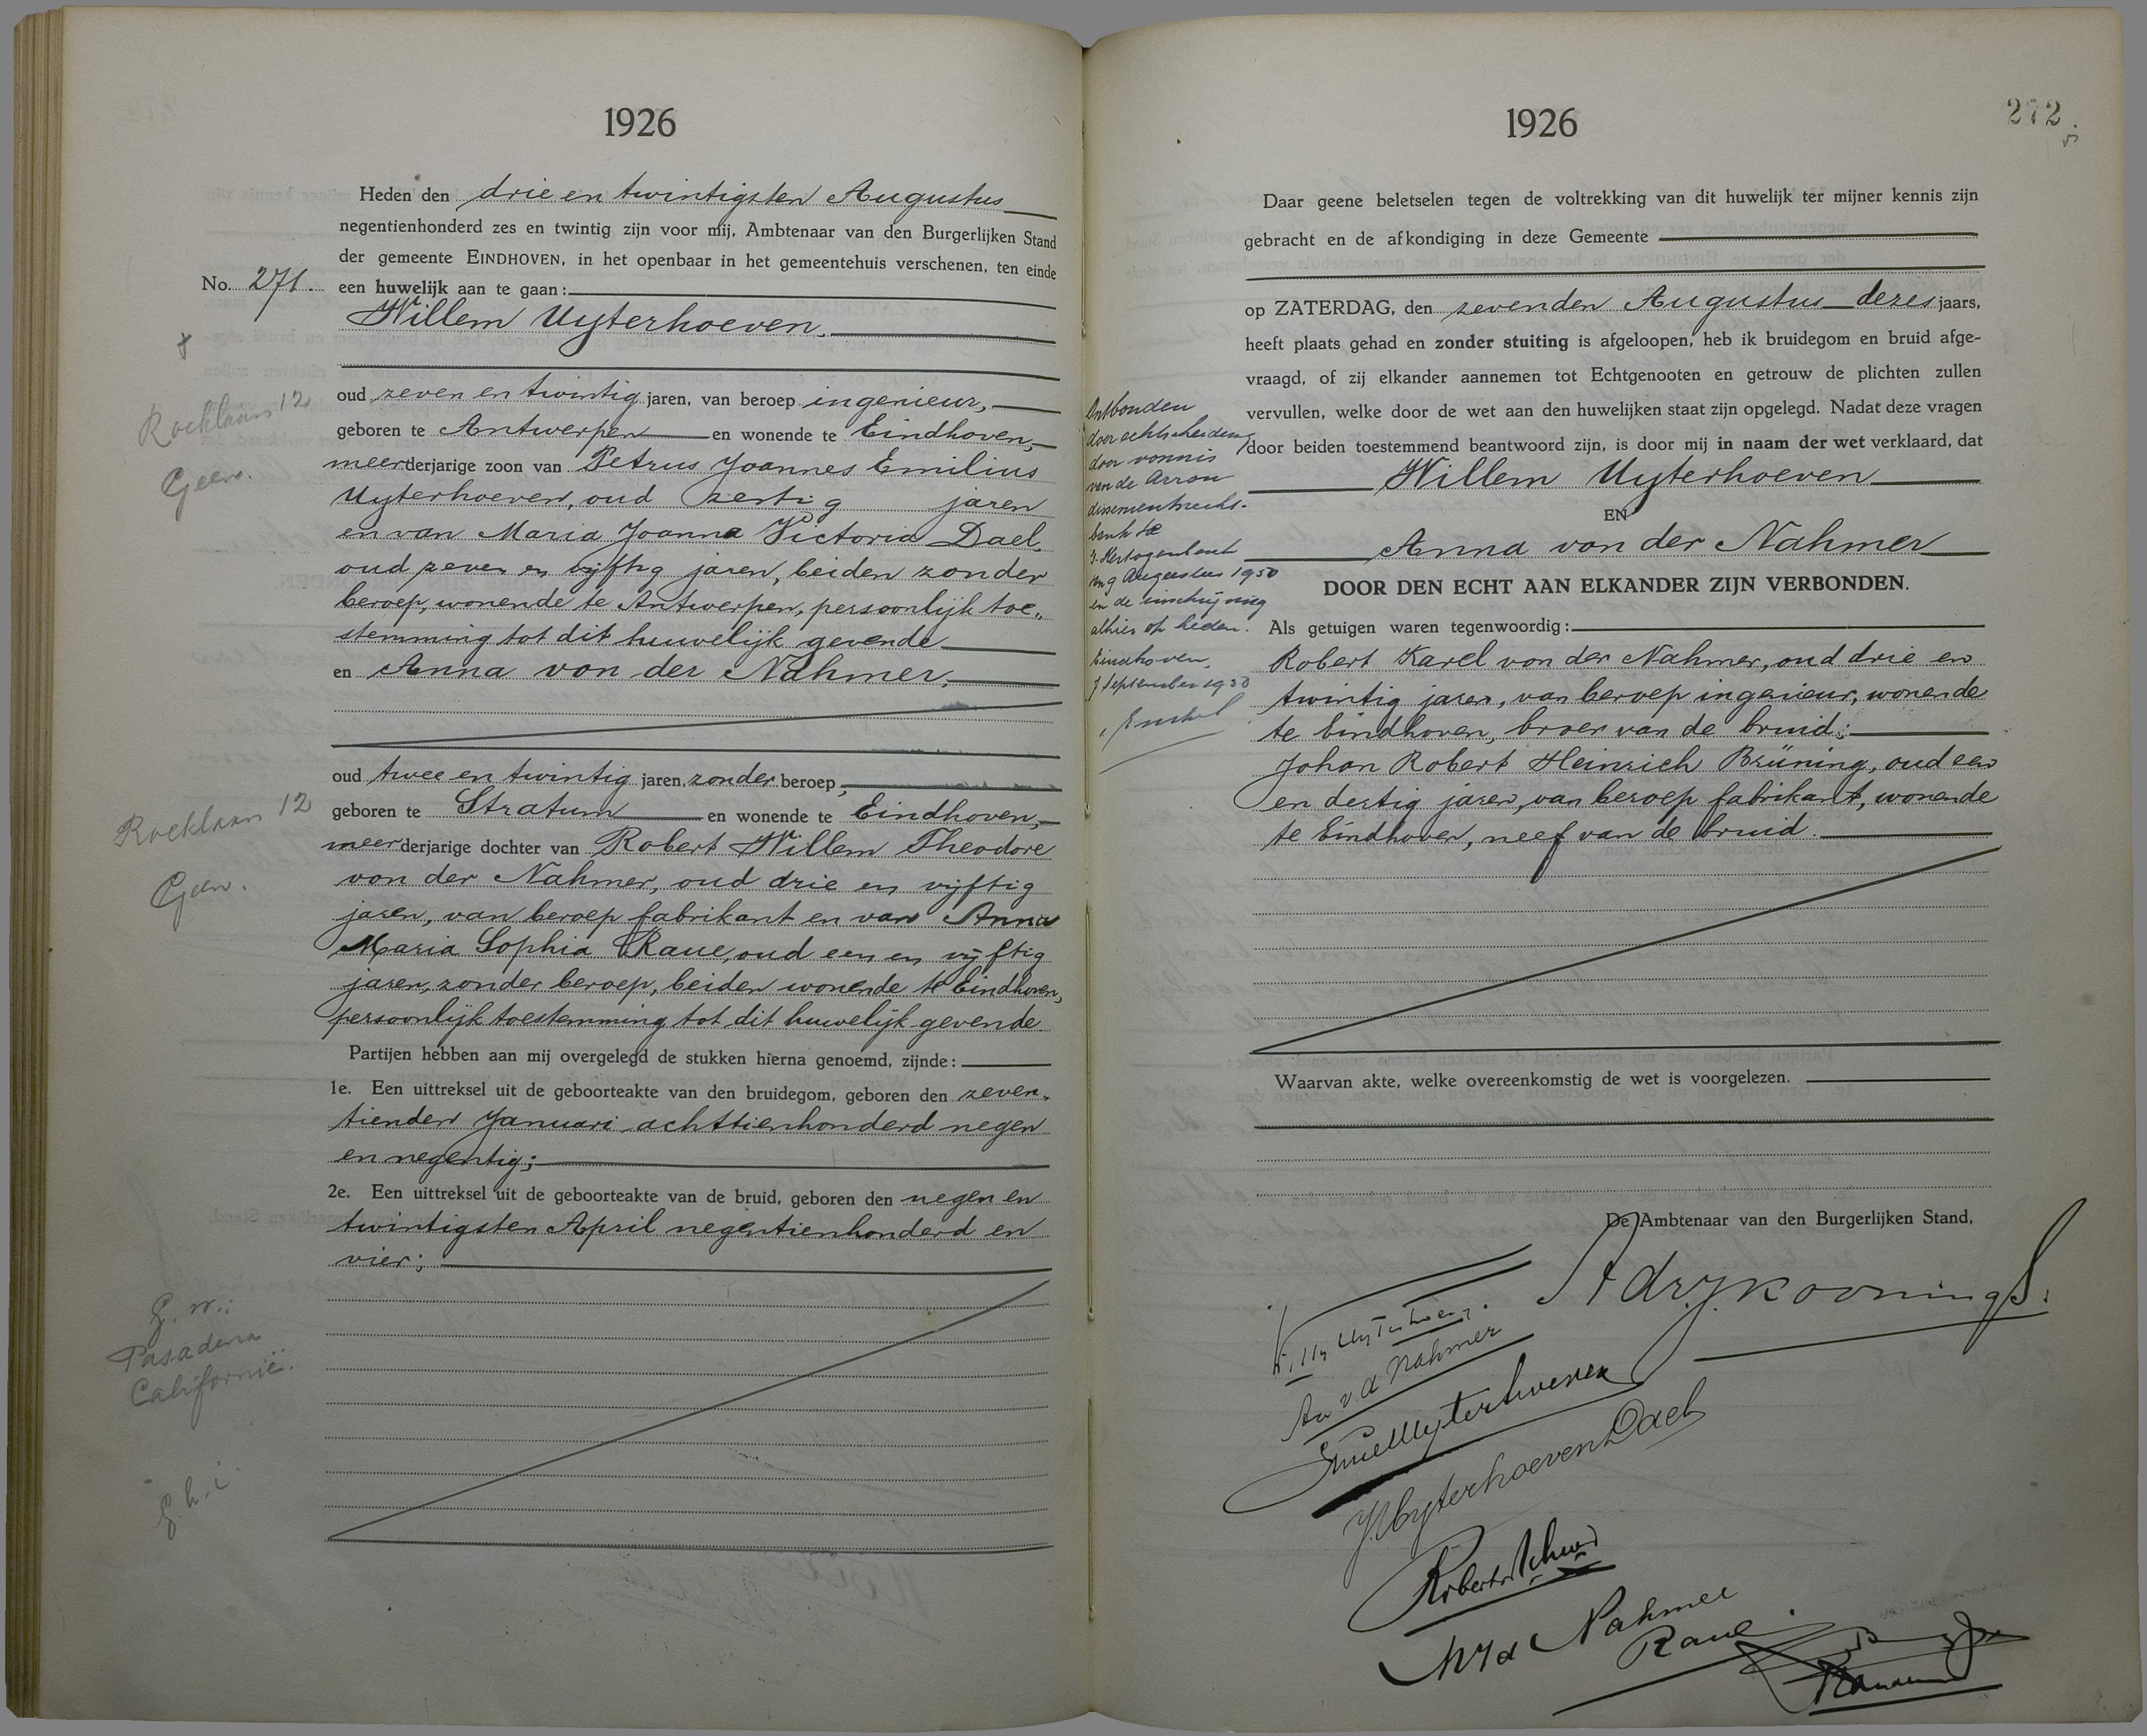 1926
Heden den drie en twintigsten Augustus
negentienhonderd zes en twintig zijn voor mij, Ambtenaar van den Burgerlijken Stand
der gemeente EINDHOVEN, in het openbaar in het gemeentehuis verschenen, ten einde
No. 271. een huwelijk aan te gaan:
Willem Uyterhoeven,
oud zeven en twintig jaren, van beroep ingenieur,
geboren te Antwerpen en wonende te Eindhoven,
meerderjarige zoon van Petrus Joannes Emilius
Uyterhoeven, oud zestig jaren
en van Maria Joanna Victoria Dael,
oud zeven en vijftig jaren, beiden zonder
beroep, wonende te Antwerpen, persoonlijk toe-
stemming tot dit huwelijk gevende
en Anna von der Nahmer,
oud twee en twintig jaren, zonder beroep,
geboren te Stratum en wonende te Eindhoven,
meerderjarige dochter van Robert Willem Theodore
von der Nahmer, oud drie en vijftig
jaren, van beroep fabrikant en van Anna
Maria Sophia Raue, oud een en vijftig
jaren, zonder beroep, beiden wonende te Eindhoven,
persoonlijk toestemming tot dit huwelijk gevende
Partijen hebben aan mij overgelegd de stukken hierna genoemd, zijnde:
1e. Een uittreksel uit de geboorteakte van den bruidegom, geboren den zeven-
tienden Januari achttienhonderd negen
en negentig;
2e. Een uittreksel uit de geboorteakte van de bruid, geboren den negen en
twintigsten April negentienhonderd en
vier;
Roeklaan 12
Geen.
Roeklaan 12
Geen.
G. w.:
Pasadena
Californië.
G. h. i
1926
272
Daar geene beletselen tegen de voltrekking van dit huwelijk ter mijner kennis zijn
gebracht en de afkondiging in deze Gemeente
op ZATERDAG, den zevenden Augustus dezes jaars,
heeft plaats gehad en zonder stuiting is afgeloopen, heb ik bruidegom en bruid afge-
vraagd, of zij elkander aannemen tot Echtgenooten en getrouw de plichten zullen
vervullen, welke door de wet aan den huwelijken staat zijn opgelegd. Nadat deze vragen
door beiden toestemmend beantwoord zijn, is door mij in naam der wet verklaard, dat
Willem Uyterhoeven
EN
Anna von der Nahmer
DOOR DEN ECHT AAN ELKANDER ZIJN VERBONDEN.
Als getuigen waren tegenwoordig:
Robert Karel von der Nahmer, oud drie en
twintig jaren, van beroep ingenieur, wonende
te Eindhoven, broer van de bruid;
Johan Robert Heinrich Brüning, oud een
en dertig jaren, van beroep fabrikant, wonende
te Eindhoven, neef van de bruid.
Waarvan akte, welke overeenkomstig de wet is voorgelezen.
De Ambtenaar van den Burgerlijken Stand,
Ontbonden
door echtscheiding
door vonnis
van de Arron
dissementsrecht-
bank te
's-Hertogenbosch
van 9 Augustus 1950
en de inschrijving
alhier op heden.
Eindhoven,
7 September 1950
Willy Uyterhoeven.
An v. d Nahmer
Emiel Uyterhoeven
J. Uyterhoeven Dael
Nahmer
Raue